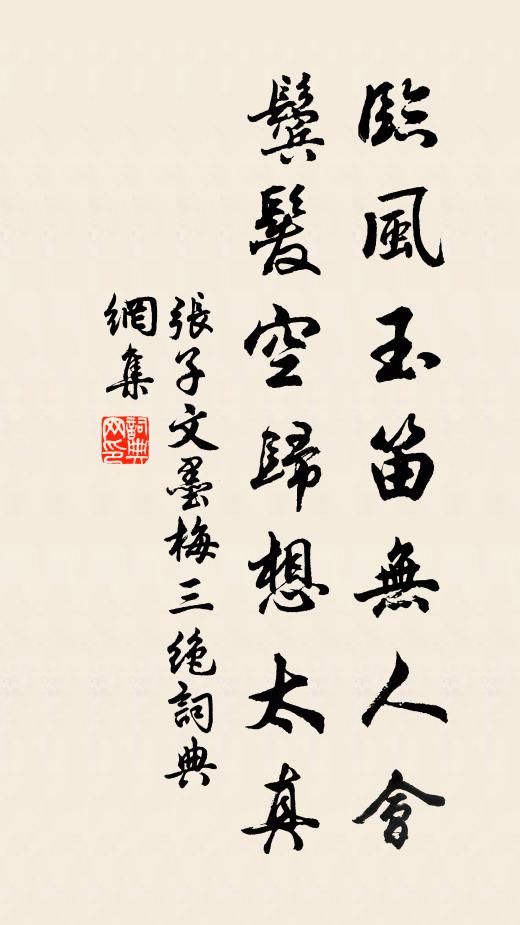 臨風玉笛無人會
鬢髮空歸想太真
張子文墨梅三絶詞典
網集
詞典
网印